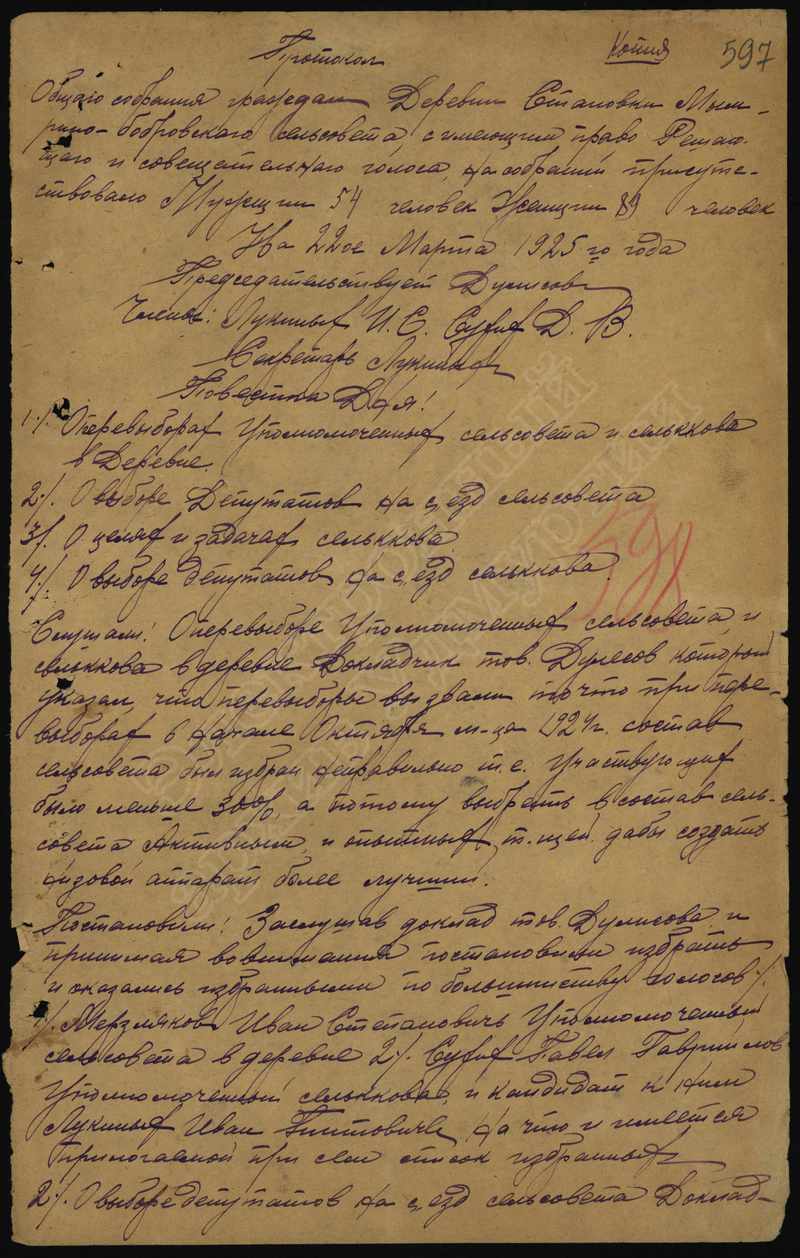 Копия
597
Протокол
Общаго собрания граждан Деревни Становки Мыи-
рино-бобровского сельсовета, с имеющим право Решаю-
щаго и совещательнаго голоса, на собрании присутс-
ствовало Мужщин 54 человек Женщин 89 человек
На 22ое Марта 1925 го года
Председательствует Дулисов
Члены: Лукиных И. С. Сухих Д. В.
Секретарь Лукиных
Повестка Дня!
1./. О перевыборах Уполномоченных сельсовета и селькхова
в Деревне.
2./. О выборе Депутатов на с,езд сельсовета
3/. О целях и задачах селькхова.
4./. О выборе депутатов на с,езд селькхова.
598
Слушали! О перевыборе Уполномоченных сельсовета и
селькхова в деревне Докладчик тов. Дулесов который
указал, что перевыборы вызвали то что при пере-
выборах в начале Октября м-ца 1924 г. состав
сельсовета был избран неправильно т.е. Участвующих
было меньше 30%, а потому выбрать в состав сель-
совета Активным и опытных т.щей дабы создать
низовой аппарат более лучший.
Постановили! Заслушав доклад тов. Дулисова и
принимая во внимания постановили избрать
и оказались избранными по большинству голосов ./.
1/. Мерзляков Иван Степановичь Уполномоченный
сельсовета в деревне 2./. Сухих Павел Гаврилов
Уполномоченный селькхова, и кандидат к ним
Лукиных Иван Титовичь, на что и имеется
прилогаемой при сем список избранных
2./. О выборе депутатов на с,езд сельсовета Доклад-